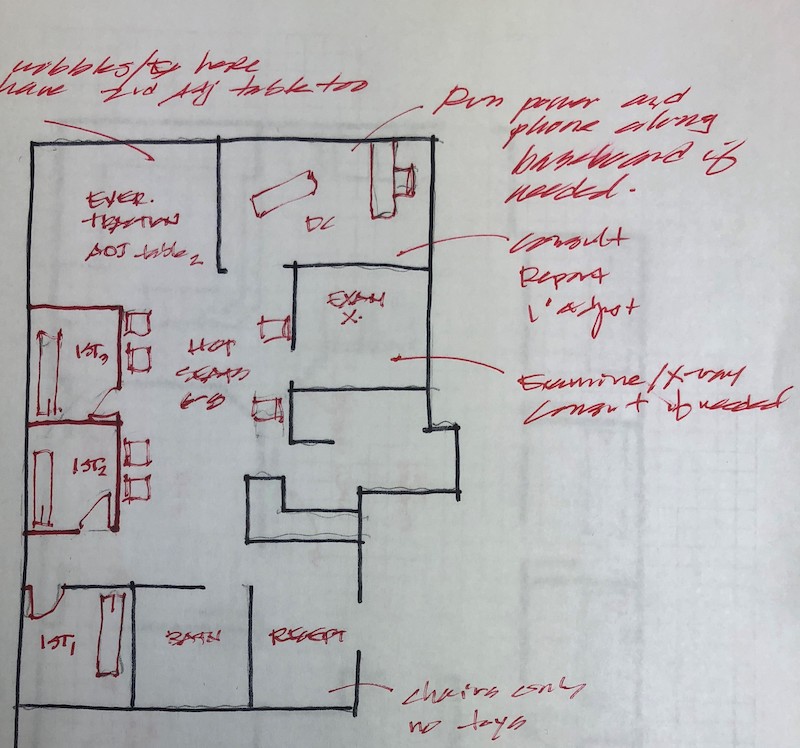 wobbles/to here
have 2nd Adj table too
Run power and
phone along
baseboard if
needed.
EXER.
TRACTION
ADJ table 2
DC
Consult
Report
1° Adjust
EXAM
X.
Examine/X-ray
Consult if needed
1ST3
HOT
SEATS
1ST2
1ST1
BATH
RECEPT
chairs only
no toys